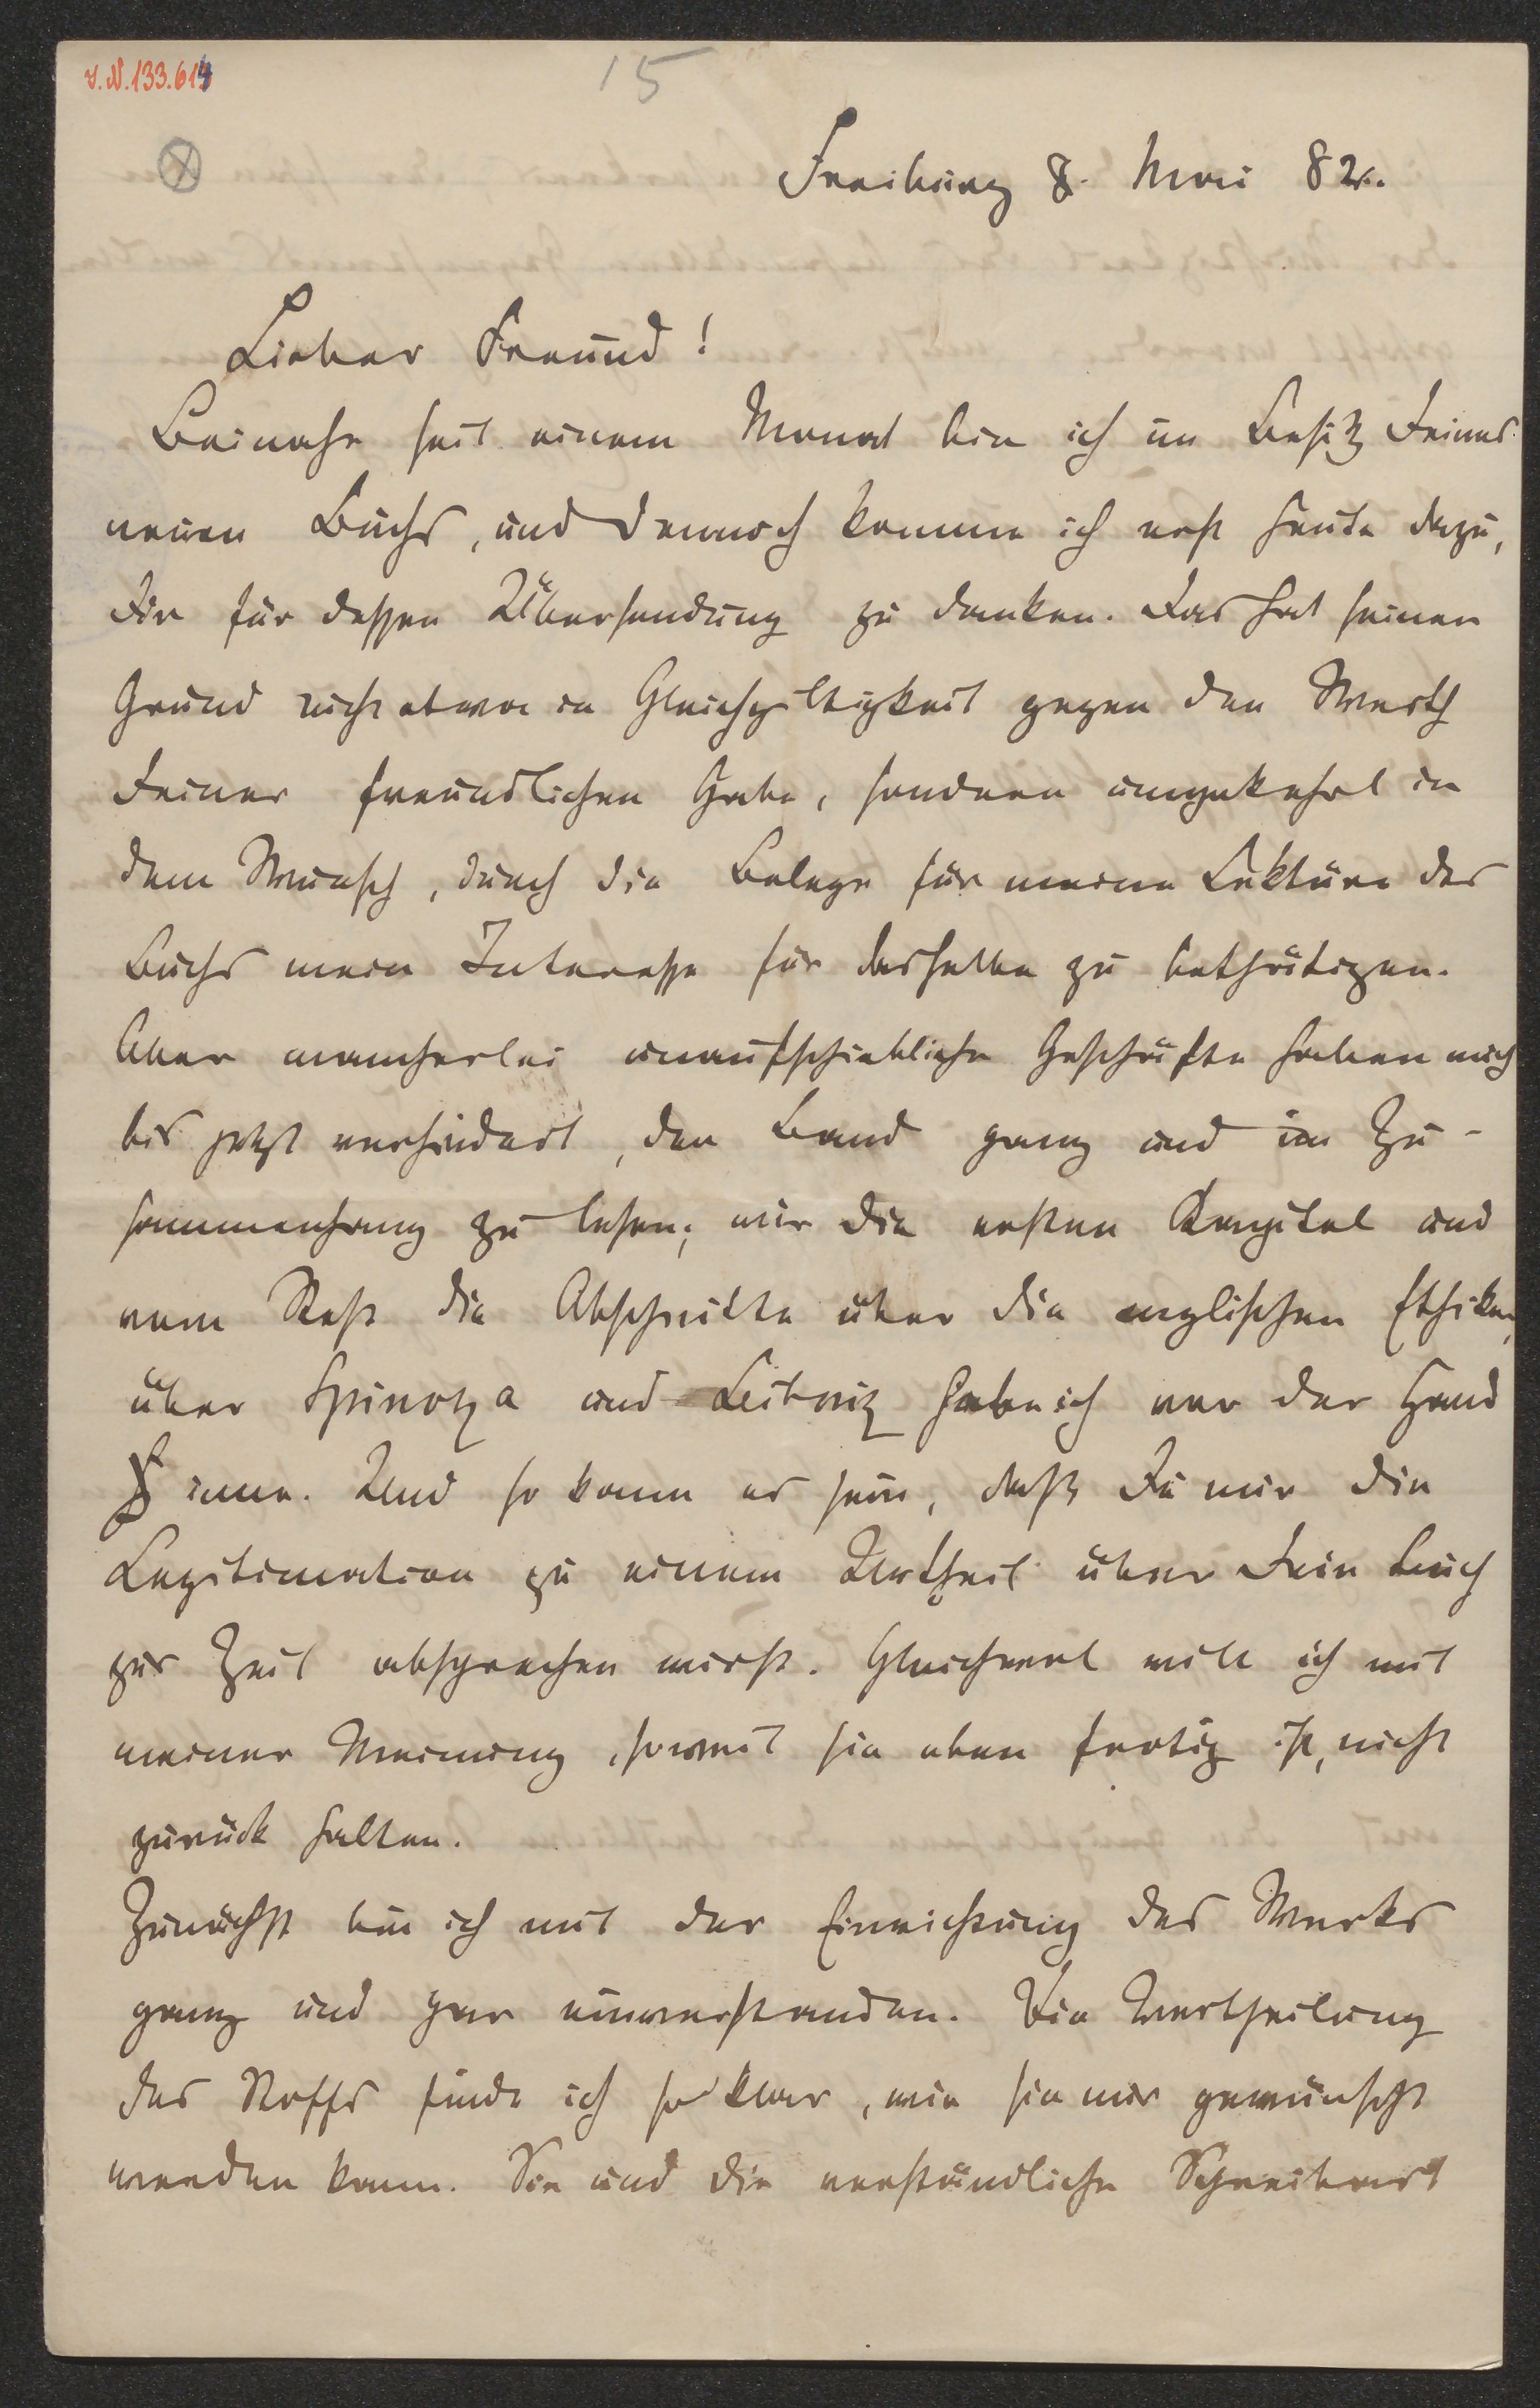 I. N. 133.614
15
Freiburg 8. Mai 82.
Lieber Freund!
Beinahe seit einem Monat bin ich im Besitz Deines
neuen Buchs, und dennoch komme ich erst heute dazu,
Dir für dessen Übersendung zu danken. Das hat seinen
Grund nicht etwa in Gleichgiltigkeit gegen den Werth
Deiner freundlichen Gabe, sondern umgekehrt in
dem Wunsch, durch die Belege für meine Lektüre des
Buchs mein Interesse für dasselbe zu bethätigen.
Aber mancherlei unaufschiebliche Geschäfte haben mich
bis jetzt verhindert, den Band ganz und im Zu-
sammenhang zu lesen; nur die ersten Kapitel und
vom Rest die Abschnitte über die englischen Ethiker,
über Spinoza und Leibniz habe ich vor der Hand
inne. Und so kann es sein, daß Du mir die
Legitimation zu einem Urtheil über Dein Buch
zur Zeit absprechen wirst. Gleichwol will ich mit
meiner Meinung, soweit sie eben fertig ist, nicht
zurück halten.
Zunächst bin ich mit der Einrichtung des Werks
ganz und gar einverstanden. Die Vertheilung
des Stoffs finde ich so klar, wie sie nur gewünscht
werden kann. Sie und die verständliche Schreibart